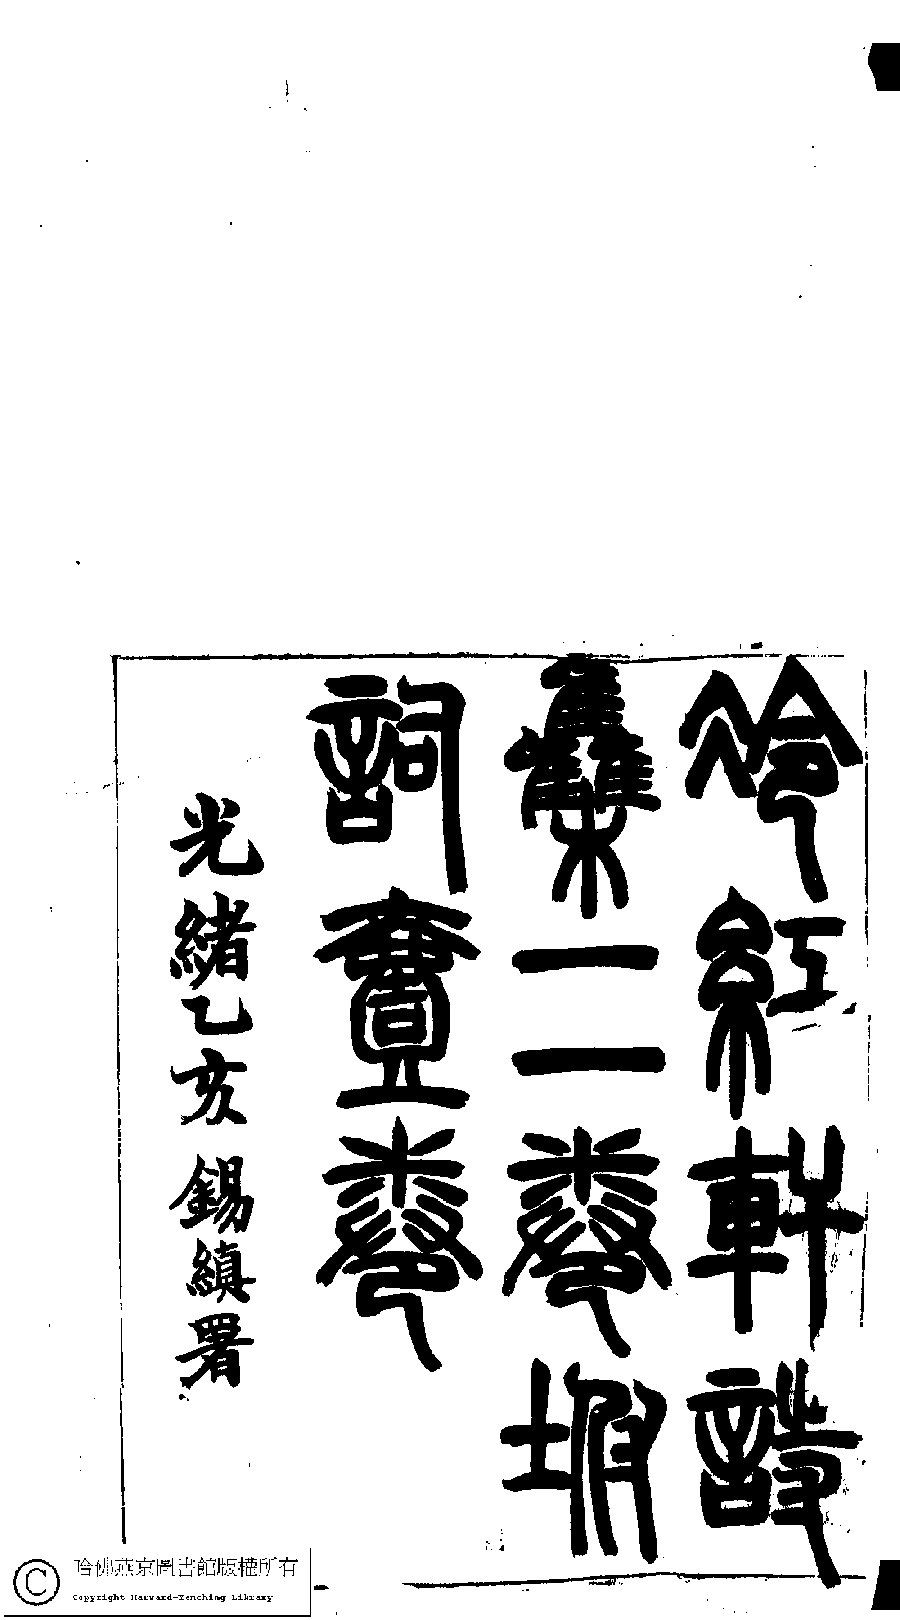 冷紅軒詩
集二卷坿
詞壹卷
光緒乙亥錫縝署
哈佛燕京圖書館版權所有
Copyright Harvard-Yenching Library